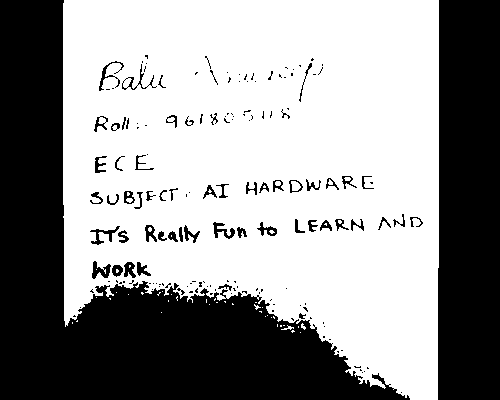 Balu
Roll:- 961805118
ECE
SUBJECT: AI HARDWARE
IT's Really Fun to LEARN AND
WORK